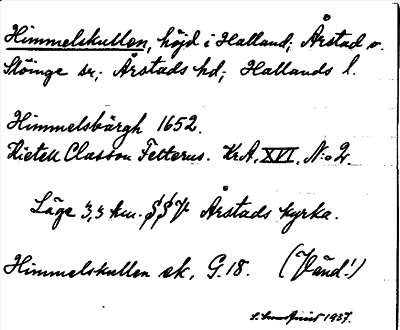 Himmelskullen, höjd i Halland; Årstad o.
Slöinge sr; Årstads hd; Hallands l.
Himmelsbärgh 1652.
Kietell Classon Felterus. KrA, XVI, N:o 2.
Läge 3,3 km. SSV Årstads kyrka.
Himmelskullen ek. G.18. (Vänd!)
1937.